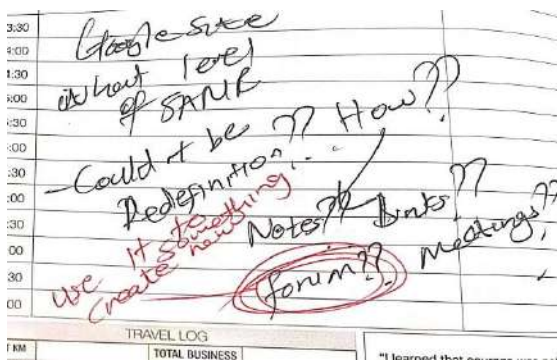 3:30
4:00
4:30
5:00
:30
:00
:30
:00
:30
:00
30
00
Google Suite
what level
of SAMR
- Could it be ?? How??
Redefinition?
Notes?? Links??
Meetings??
forum??
use it to
create something
new
TRAVEL LOG
T KM
TOTAL BUSINESS
"I learned that courage was